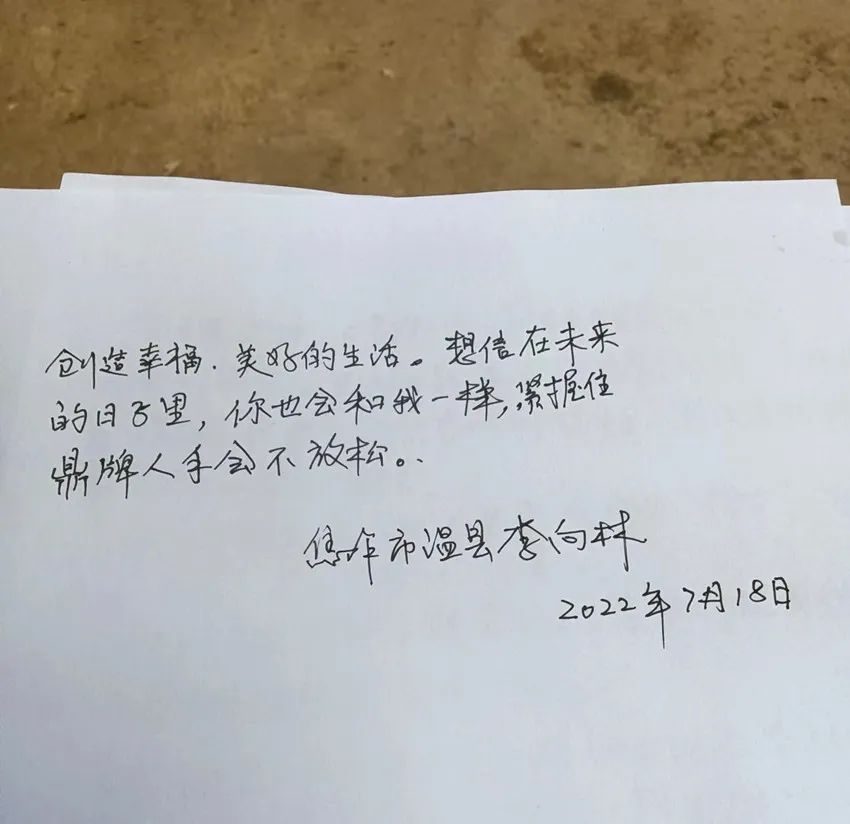 创造幸福.美好的生活。想信在未来
的日子里，你也会和我一样，紧握住
鼎牌人手会不放松。.
焦作市温县李向林
2022年7月18日